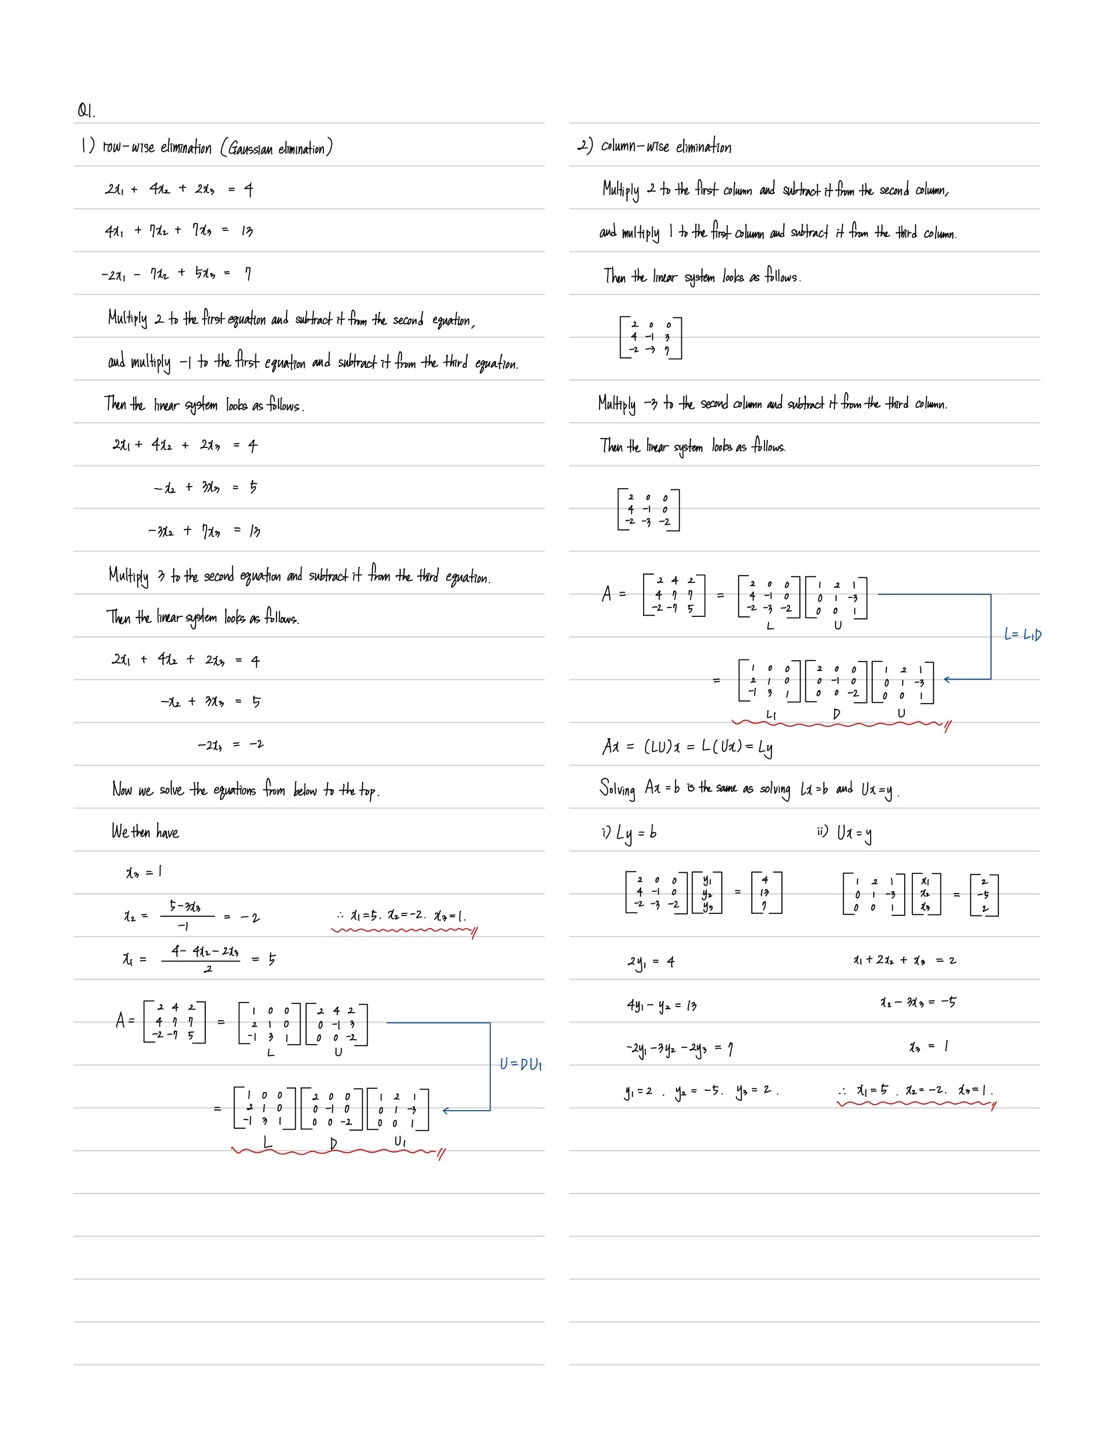 Q1.
1) row-wise elimination (Gaussian elimination)
2x₁ + 4x₂ + 2x₃ = 4
4x₁ + 7x₂ + 7x₃ = 13
-2x₁ - 7x₂ + 5x₃ = 7
Multiply 2 to the first equation and subtract it from the second equation,
and multiply -1 to the first equation and subtract it from the third equation.
Then the linear system looks as follows.
2x₁ + 4x₂ + 2x₃ = 4
-x₂ + 3x₃ = 5
-3x₂ + 7x₃ = 13
Multiply 3 to the second equation and subtract it from the third equation.
Then the linear system looks as follows.
2x₁ + 4x₂ + 2x₃ = 4
-x₂ + 3x₃ = 5
-2x₃ = -2
Now we solve the equations from below to the top.
We then have
x₃ = 1
x₂ = (5-3x₃)/(-1) = -2 ∴ x₁=5. x₂=-2. x₃=1.
x₁ = (4-4x₂-2x₃)/2 = 5
A = [2 4 2; 4 7 7; -2 -7 5] = [1 0 0; 2 1 0; -1 3 1] [2 4 2; 0 -1 3; 0 0 -2]
L U
U=DU₁
= [1 0 0; 2 1 0; -1 3 1] [2 0 0; 0 -1 0; 0 0 -2] [1 2 1; 0 1 -3; 0 0 1]
L D U₁
2) column-wise elimination
Multiply 2 to the first column and subtract it from the second column,
and multiply 1 to the first column and subtract it from the third column.
Then the linear system looks as follows.
[2 0 0; 4 -1 3; -2 -3 7]
Multiply -3 to the second column and subtract it from the third column.
Then the linear system looks as follows.
[2 0 0; 4 -1 0; -2 -3 -2]
A = [2 4 2; 4 7 7; -2 -7 5] = [2 0 0; 4 -1 0; -2 -3 -2] [1 2 1; 0 1 -3; 0 0 1]
L U
L=L₁D
= [1 0 0; 2 1 0; -1 3 1] [2 0 0; 0 -1 0; 0 0 -2] [1 2 1; 0 1 -3; 0 0 1]
L₁ D U
Ax = (LU)x = L(Ux) = Ly
Solving Ax=b is the same as solving Lx=b and Ux=y.
i) Ly=b ii) Ux=y
[2 0 0; 4 -1 0; -2 -3 -2] [y₁; y₂; y₃] = [4; 13; 7] [1 2 1; 0 1 -3; 0 0 1] [x₁; x₂; x₃] = [2; -5; 2]
2y₁ = 4 x₁+2x₂+x₃ = 2
4y₁-y₂ = 13 x₂-3x₃ = -5
-2y₁-3y₂-2y₃ = 7 x₃ = 1
y₁=2. y₂=-5. y₃=2. ∴ x₁=5. x₂=-2. x₃=1.